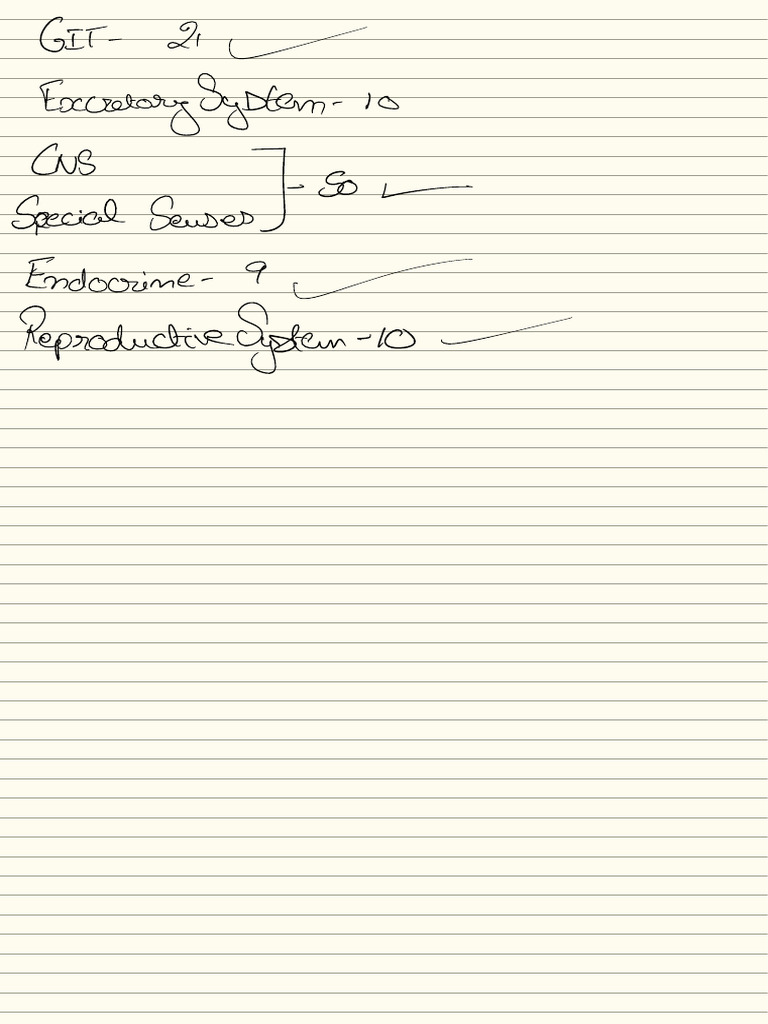 GIT - 21
Excretory System - 10
CNS
Special Senses ] - 50
Endocrine - 9
Reproductive System - 10